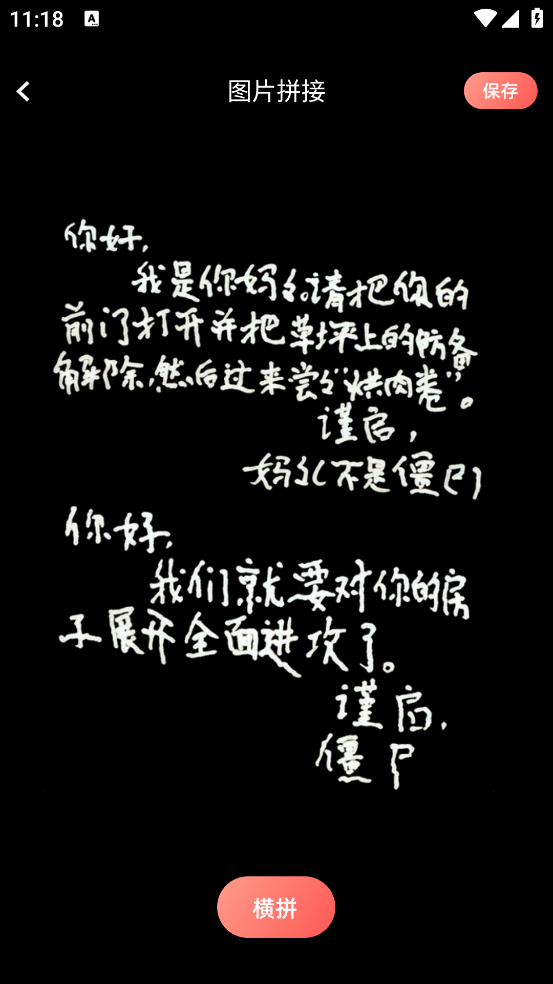 11:18
A
图片拼接
保存
你好,
我是你妈妈。请把你的
前门打开并把草坪上的防备
解除,然后过来尝尝“烘肉卷”。
谨启,
妈妈(不是僵尸)
你好,
我们就要对你的房
子展开全面进攻了。
谨启,
僵尸
横拼